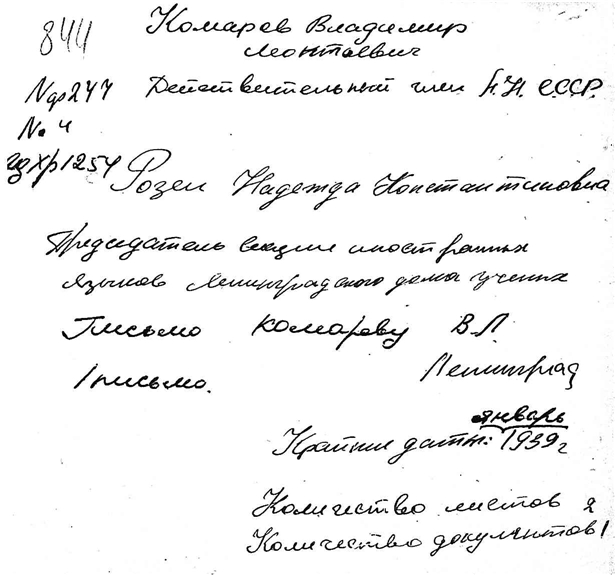 844
Комаров Владимир
Леонтьевич
№ф 277 Действительный член А.Н. СССР.
№ 4
ед хр 1254 Розен Надежда Константиновна
Председатель секции иностранных
языков Ленинградского дома ученых
Письмо Комарову В.Л.
1 письмо. Ленинград
январь
Крайние даты: 1939 г
Количество листов 2
Количество документов 1